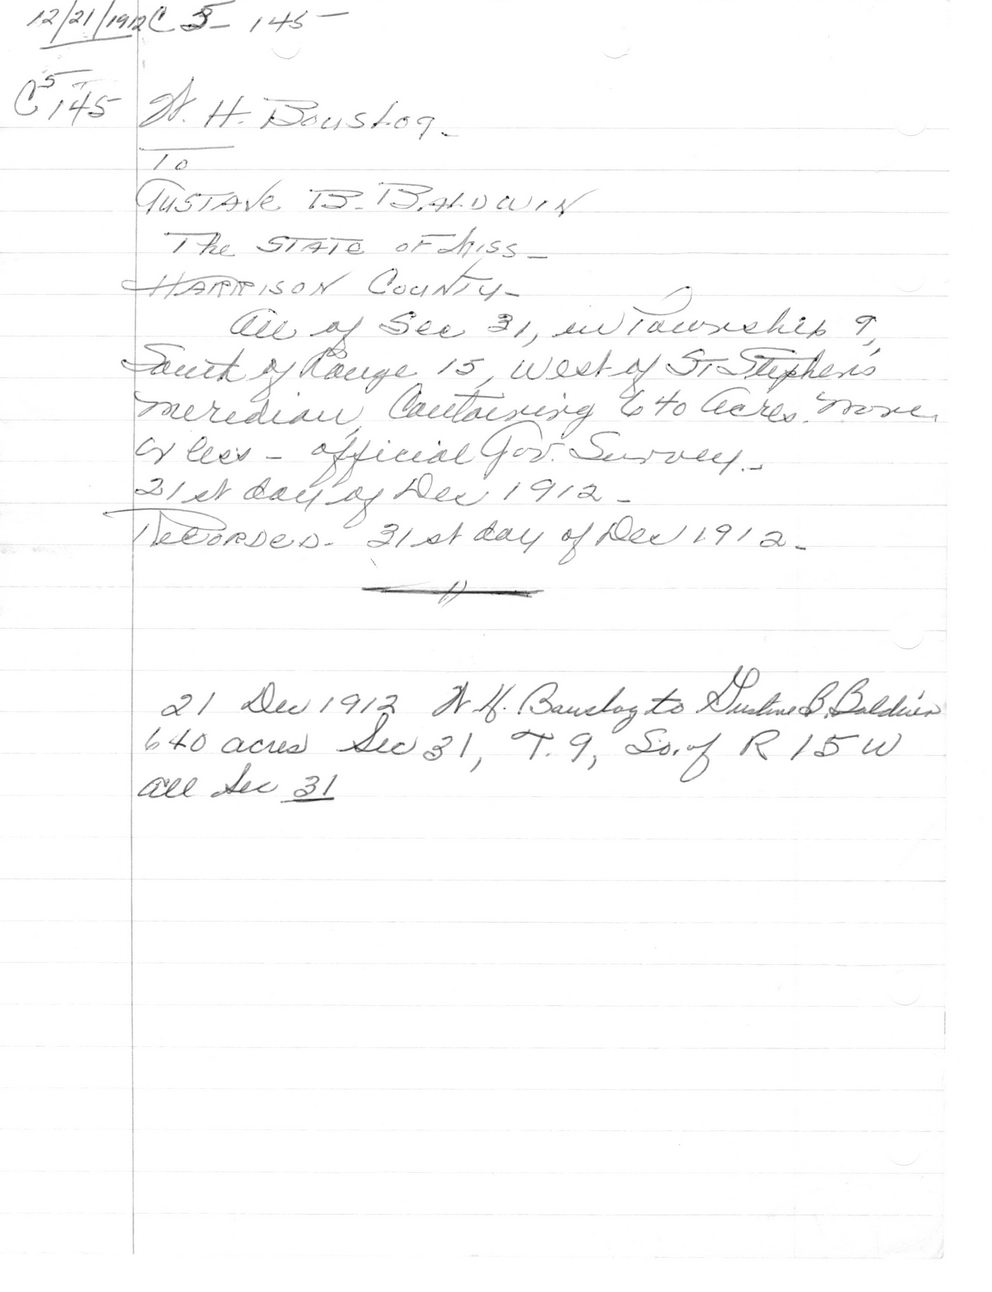 12/21/1912 C 5 - 145 -
C5 145 W. H. Bouslog -
To
GUSTAVE B. BALDWIN
The STATE OF Miss -
HARRISON COUNTY -
All of Sec 31, in Township 9,
South of Range 15, West of St Stephen's
Meridian, Containing 640 acres. more
or less - official Gov. Survey. -
21st day of Dec 1912 -
RECORDED - 31st day of Dec 1912 -
21 Dec 1912 W. H. Bouslog to Gustave B. Baldwin
640 acres Sec 31, T. 9, So. of R 15 W
all Sec 31